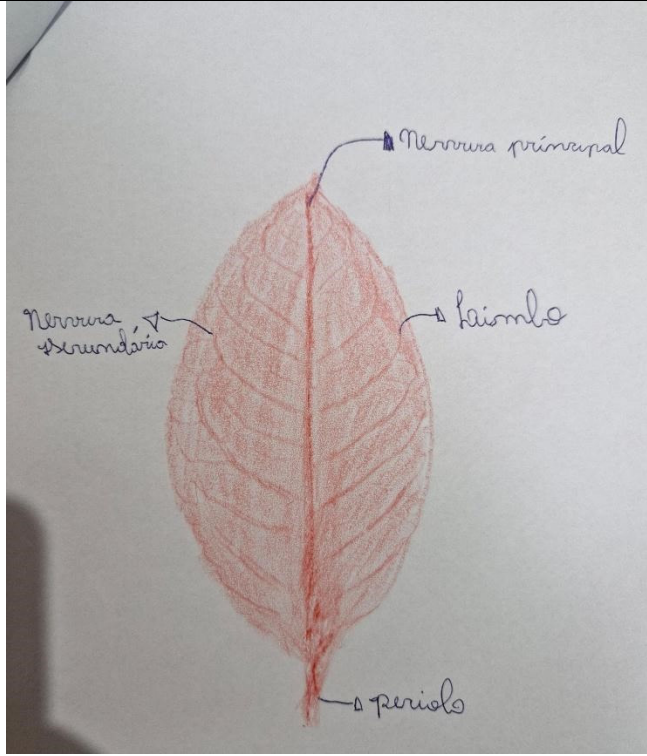 Nervura principal
Nervura
secundária
Laimbo
periolo